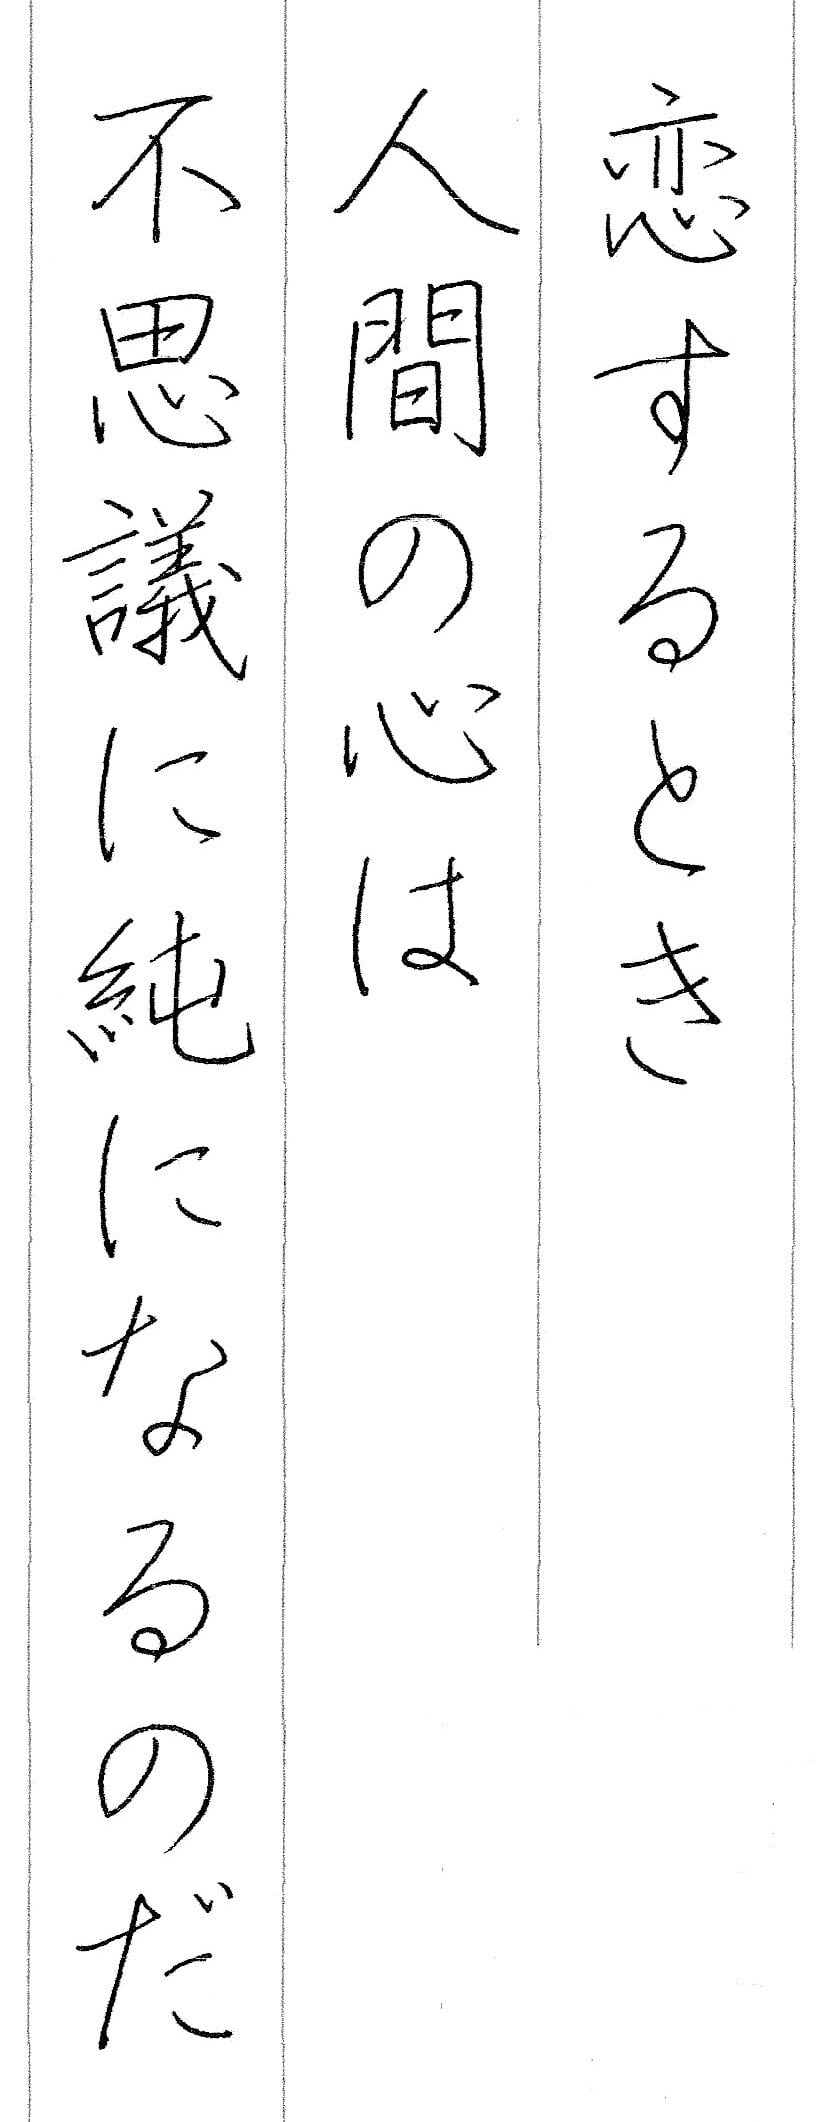 恋するとき
人間の心は
不思議に純になるのだ